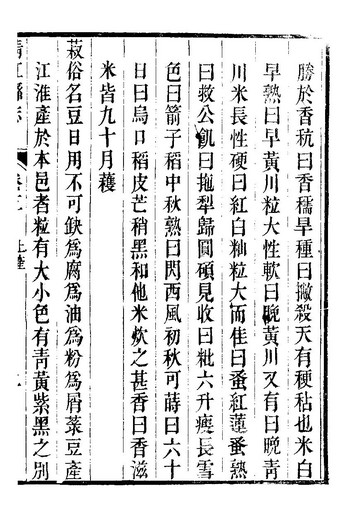 勝於香秔曰香穤早種曰撇殺天有稉秥也米白
早熟曰早黃川粒大性軟曰晚黃川又有曰晚靑
川米長性硬曰紅白籼粒大而佳曰蚤紅蓮蚤熟
曰救公飢曰拖犁歸圓碩見收曰䊧六升瘦長雪
色曰箭子稻中秋熟曰閃西風初秋可蒔曰六十
日曰烏口稻皮芒稍黑和他米炊之甚香曰香滋
米皆九十月穫
菽俗名豆日用不可缺爲腐爲油爲粉爲屑菉豆產
江淮產於本邑者粒有大小色有靑黃紫黑之別